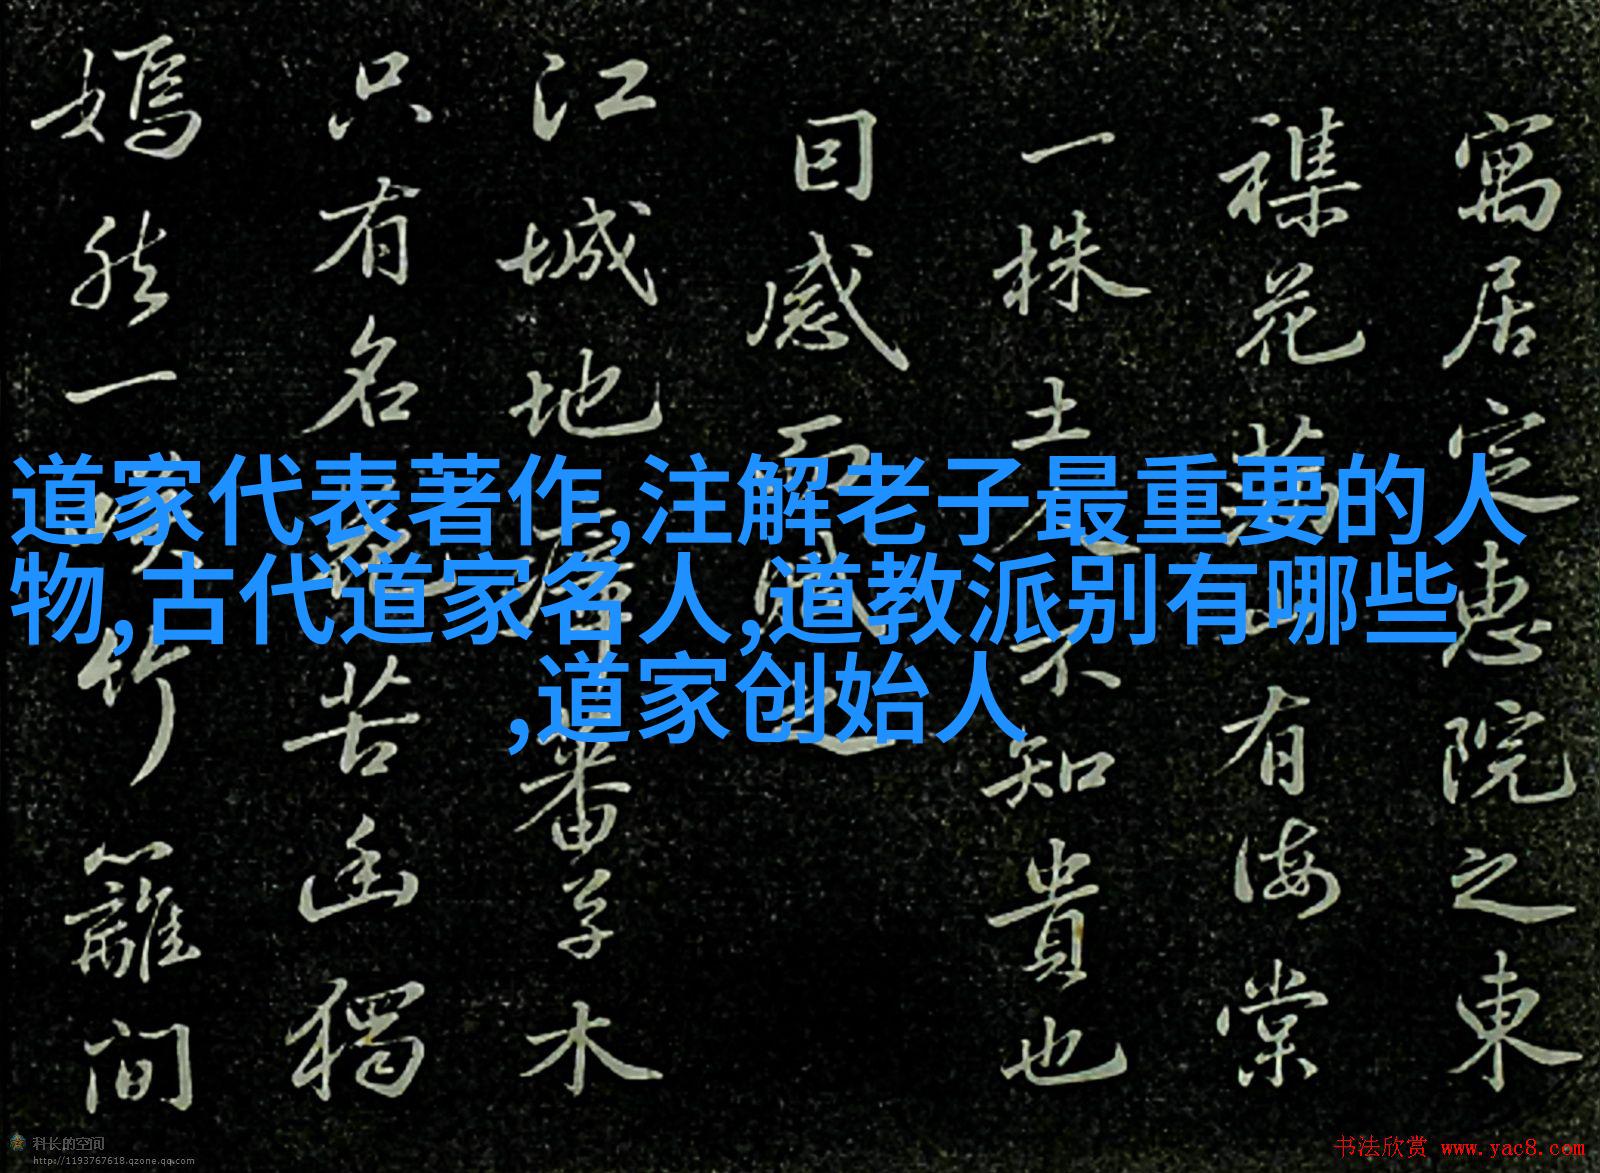 道家代表著作,注解老子最重要的人
物,古代道家名人,道教派别有哪些
,道家创始人
寓居定惠院之東
襍花滿山有海棠
一株土人不知貴也
囙感而賦之
江城地瘴蕃草木
只有名花苦幽獨
嫣然一笑竹籬間
科长的空间
http://1193767618.qzone.qq.com
书法欣赏 www.yac8.com